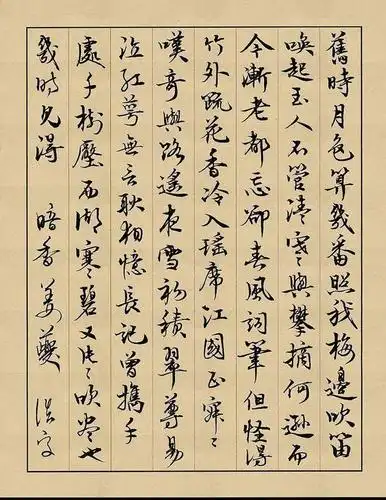 舊時月色算幾番照我梅邊吹笛
喚起玉人不管清寒與攀摘何遜而
今漸老都忘卻春風詞筆但怪得
竹外疏花香冷入瑤席江國正寂〻
嘆寄與路遙夜雪初積翠尊易
泣紅萼無言耿相憶長記曾攜手
處千樹壓西湖寒碧又片〻吹盡也
幾時見得 暗香 姜夔